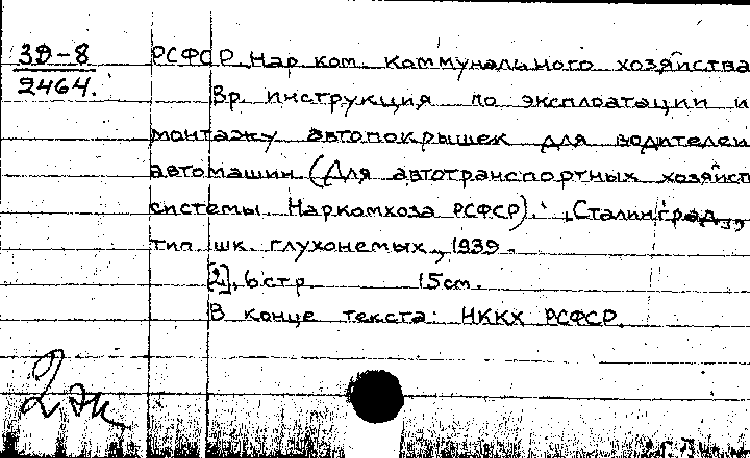 3D-8
2464.
РСФСР. Нар. ком. коммунального хозяйства
Вр. инструкция по эксплоатации и
монтажу автопокрышек для водителей
автомашин (Для автотранспортных хозяйств
системы Наркомхоза РСФСР). Сталинград,
тип. шк. глухонемых, 1939.
[2], 6 стр. 15 см.
В конце текста: НККХ РСФСР.
2 эк